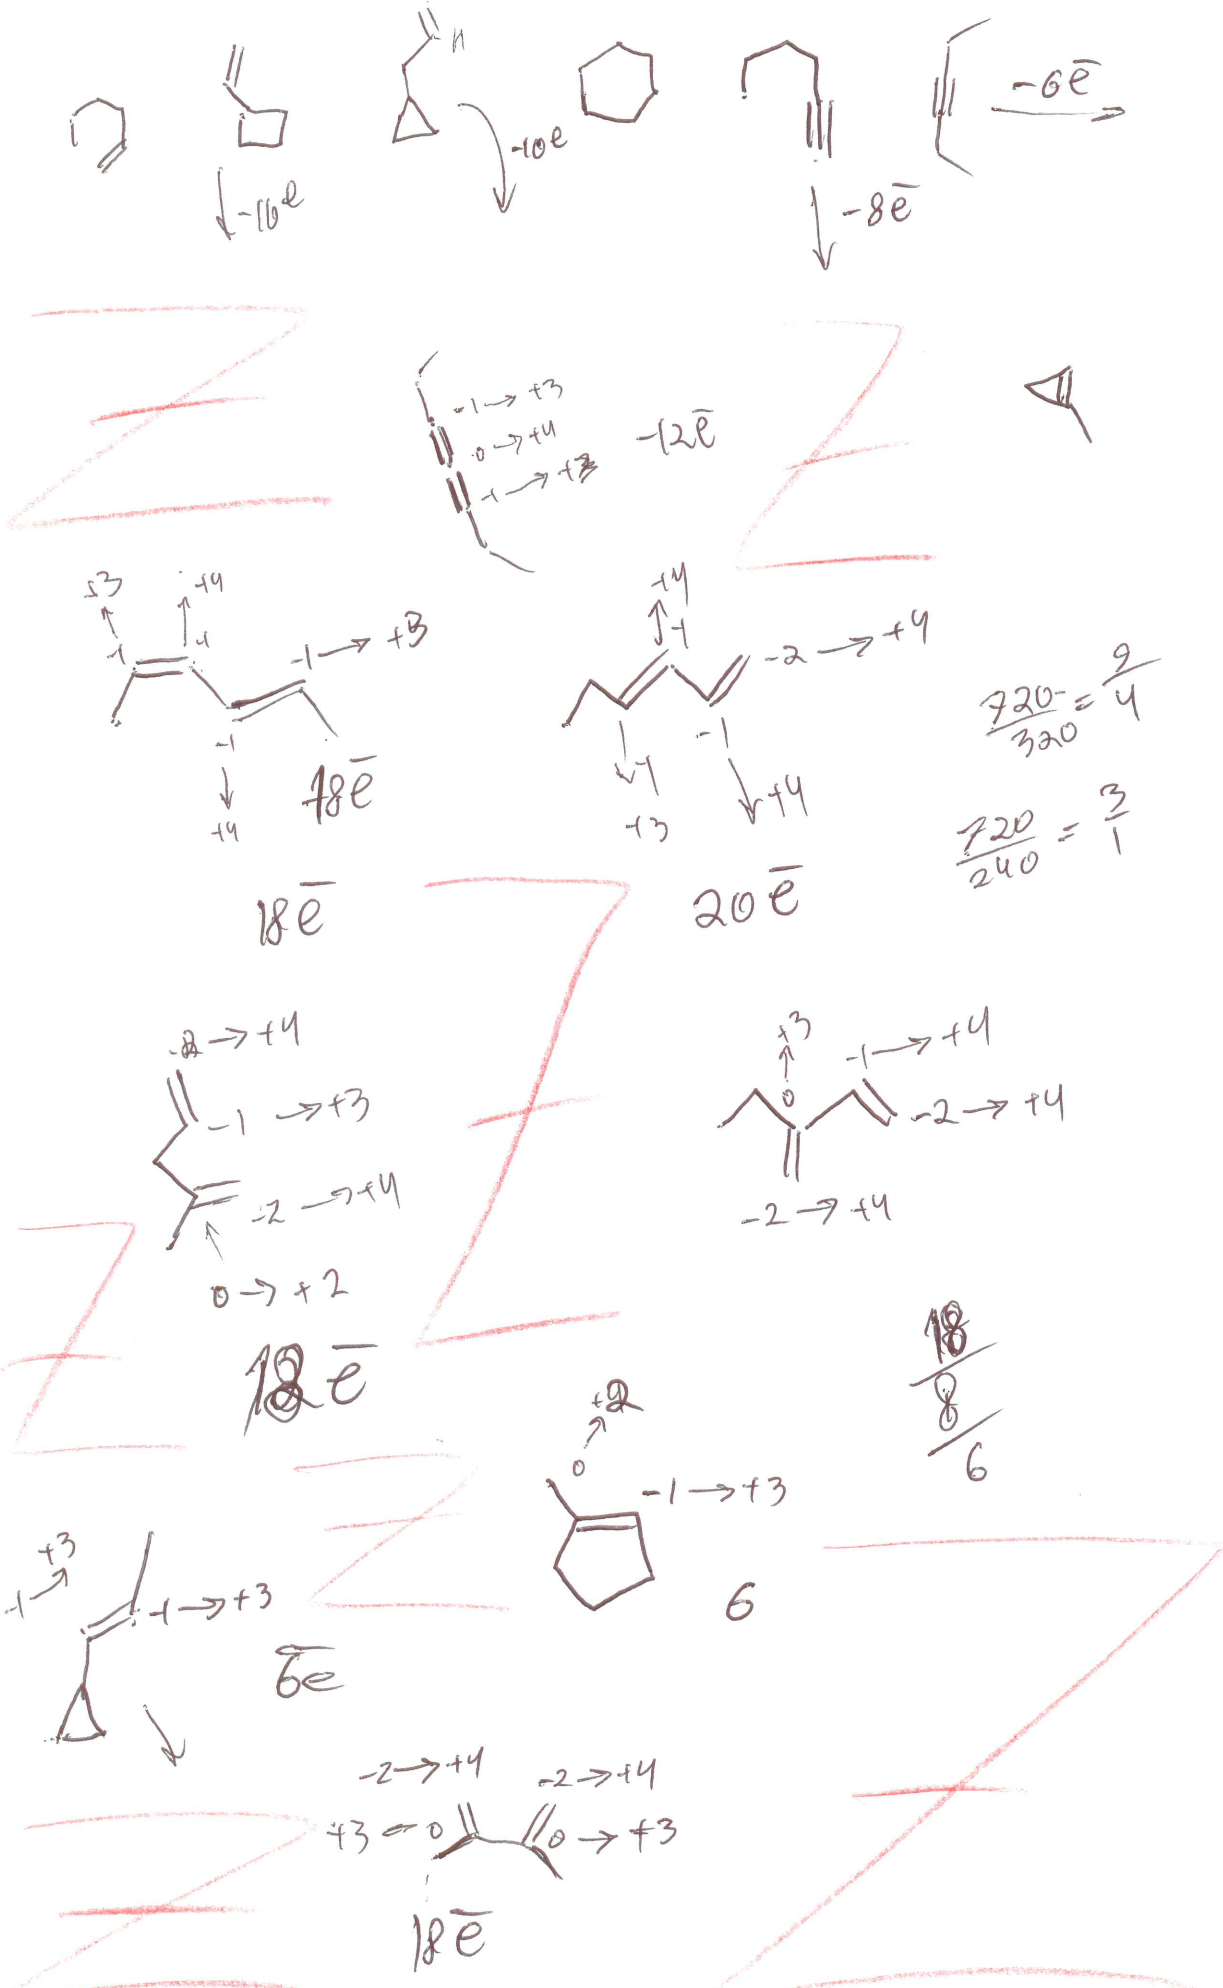 H
-10e
-10e
-8e̅
-6e̅
-1 → +3
0 → +4
-1 → +3
-12e̅
+3
+4
-1
-1
-1 → +3
-1
+4
18e̅
18e̅
+4
-1
-2 → +4
-1
-1
+3
+4
20e̅
720/320 = 9/4
720/240 = 3/1
-2 → +4
-1 → +3
-2 → +4
0 → +2
18e̅
+3
0
-1 → +4
-2 → +4
-2 → +4
18
8
6
+2
0
-1 → +3
6
+3
-1
-1 → +3
6e̅
-2 → +4
-2 → +4
+3 ← 0
0 → +3
18e̅